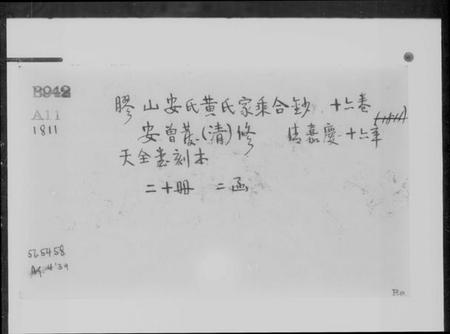 B942
A11
1811
膠山安氏黄氏家乘合鈔 十六卷
安曾 (清)修 清嘉慶十六年 (1811)
天全堂刻本
二十冊 二函
565458
'39